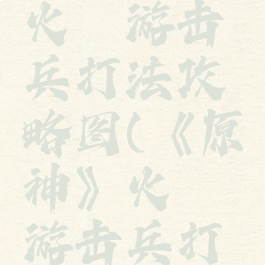 火 游击
兵打法攻
略图(《原
神》火
游击兵打